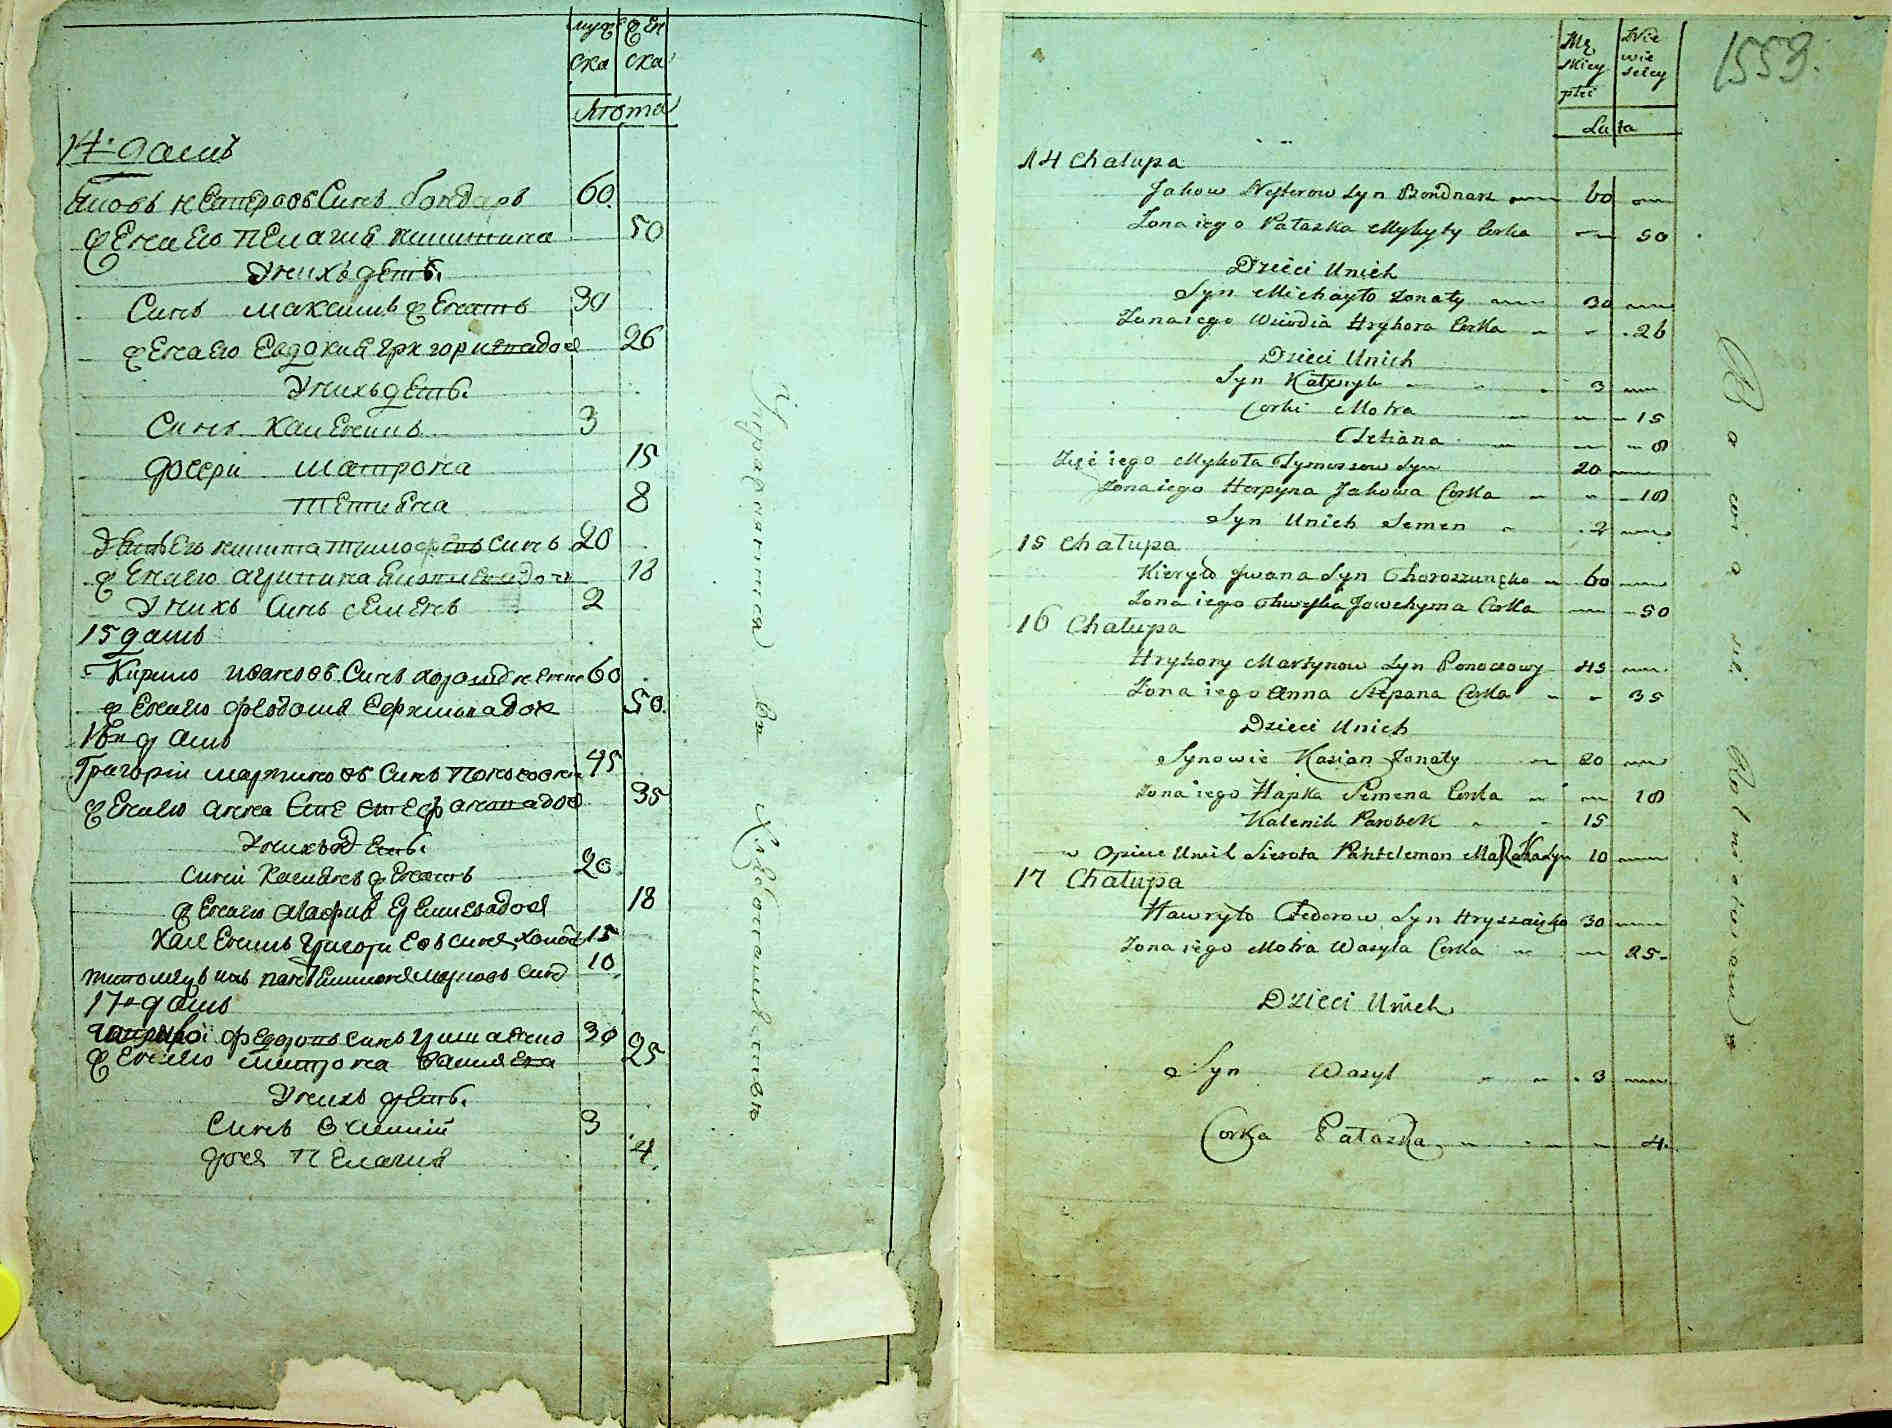 муж жен
ска ска
Лѣта
14. домъ
Яковъ Нестеровъ Синъ бондарь 60
жена его Пелагия Никитина 50
У нихъ дети.
Синъ Максимъ женатъ 30
жена его Евдокия Григориева доч 26
У нихъ дети.
Синъ Каленикъ 3
дочери Матрона 15
Тетиана 8
Зять его Никита Тимофеевъ синъ 20
жена его Агрипина Яковлева доч 18
У нихъ Синъ Семенъ 2
15 домъ
Кирило Ивановъ Синъ 60
жена его Феодосия доч 50.
16 домъ
Григорій Мартиновъ Синъ 45
жена его Анна Стефанова доч 35
У нихъ дети.
Синъ Касиянъ женатъ 20.
жена его Агафия доч 18
Каленикъ Григориевъ синъ 15
синъ 10
17 домъ
Федоровъ синъ 30
жена его Митрона Василева 25
У нихъ дети.
Синъ Василій 3
доч Пелагия 4.
Упражняются въ Хлебопашествѣ
Mę skiey płci Nie wie sciey
Lata
1553.
14 Chałupa
Jakow Nesterow Syn Bondnarz 60
Zona iego Pałazka Mykyty Corka 50
Dzieci Unich
Syn Michayło Zonaty 30
Zona iego Wivdia Hryhora Corka 26
Dzieci Unich
Syn Kałenyk 3
Corki Motra 15
Tetiana 8
Zięć iego Mykoła Tymoszow Syn 20
Zona iego Horpyna Jakowa Corka 18
Syn Unich Semen 2
15 Chałupa
Kieryło Jwana Syn Choroszunęko 60
Zona iego Jowchyma Corka 50
16 Chałupa
Hryhory Martynow Syn Ponocowy 45
Zona iego Anna Stepana Corka 35
Dzieci Unich
Synowie Kasian Zonaty 20
Zona iego Hapka Semena Corka 18
Kalenik Parobek 15
w Opiece Unich Sierota Pantelemon Syn 10
17 Chałupa
Hawryło Fedorow Syn Hryszaięko 30
Zona iego Motra Wasyla Corka 25
Dzieci Unich
Syn Wasyl 3
Corka Pałazka 4.
Bawią się Rolnictwem